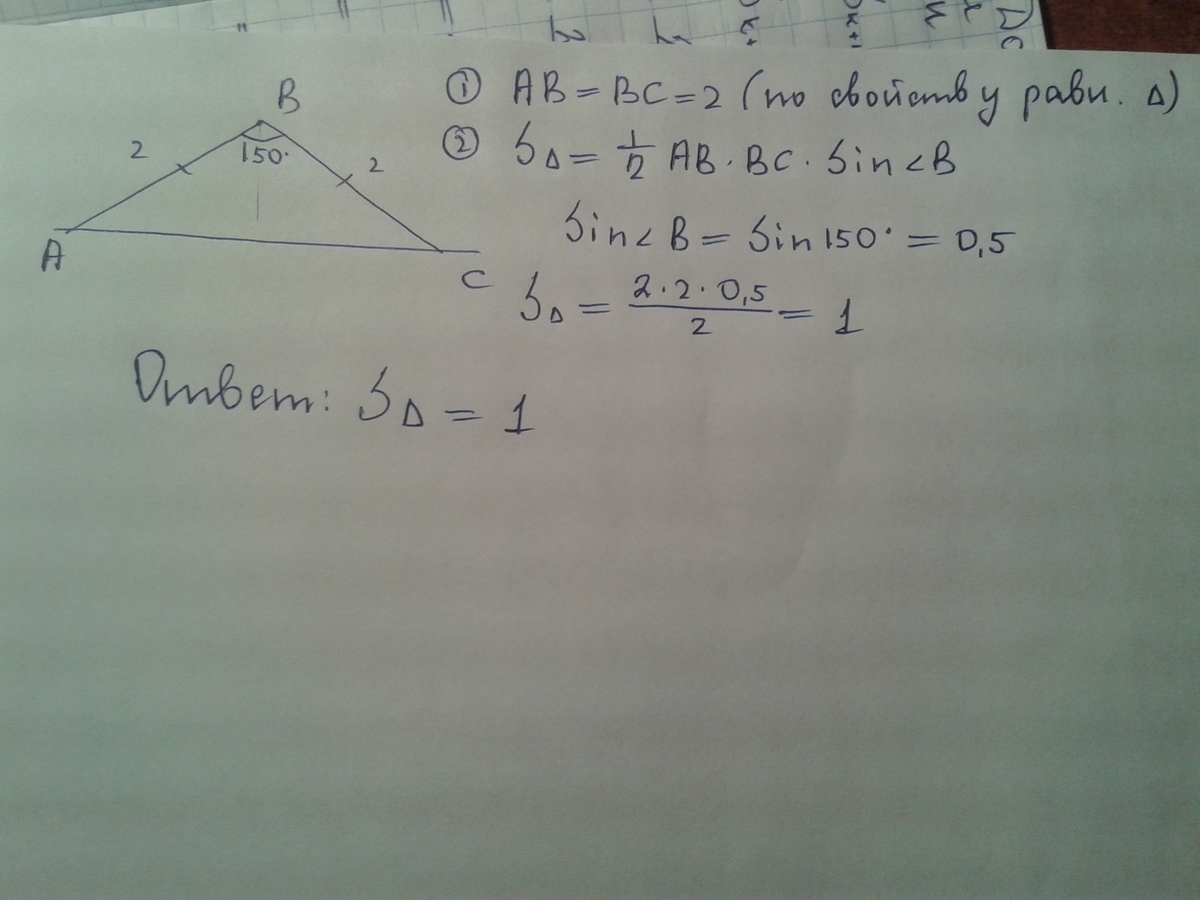 B
2
150°
2
A
C
① AB = BC = 2 (по свойству равн. Δ)
② SΔ = 1/2 AB · BC · Sin∠B
Sin∠B = Sin150° = 0,5
SΔ = 2·2·0,5/2 = 1
Ответ: SΔ = 1